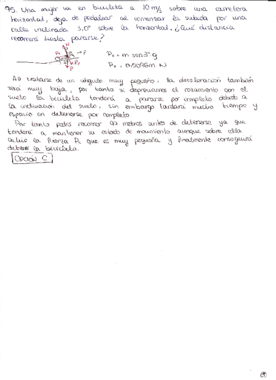 75. Una mujer va en bicicleta a 10 m/s sobre una carretera
horizontal, deja de pedalear al comenzar la subida por una
calle inclinada 3,0° sobre la horizontal. ¿Qué distancia
recorrerá hasta pararse?
Al tratarse de un ángulo muy pequeño, la deceleración también
será muy baja, por tanto si despreciamos el rozamiento con el
suelo la bicicleta tenderá a pararse por completo debido a
la inclinación del suelo, sin embargo tardará mucho tiempo y
espacio en detenerse por completo
Por tanto podrá recorrer metros antes de detenerse ya que
tenderá a mantener su estado de movimiento aunque sobre ella
actúe la fuerza que es muy pequeña y finalmente conseguirá
detener la bicicleta.
OPCIÓN C